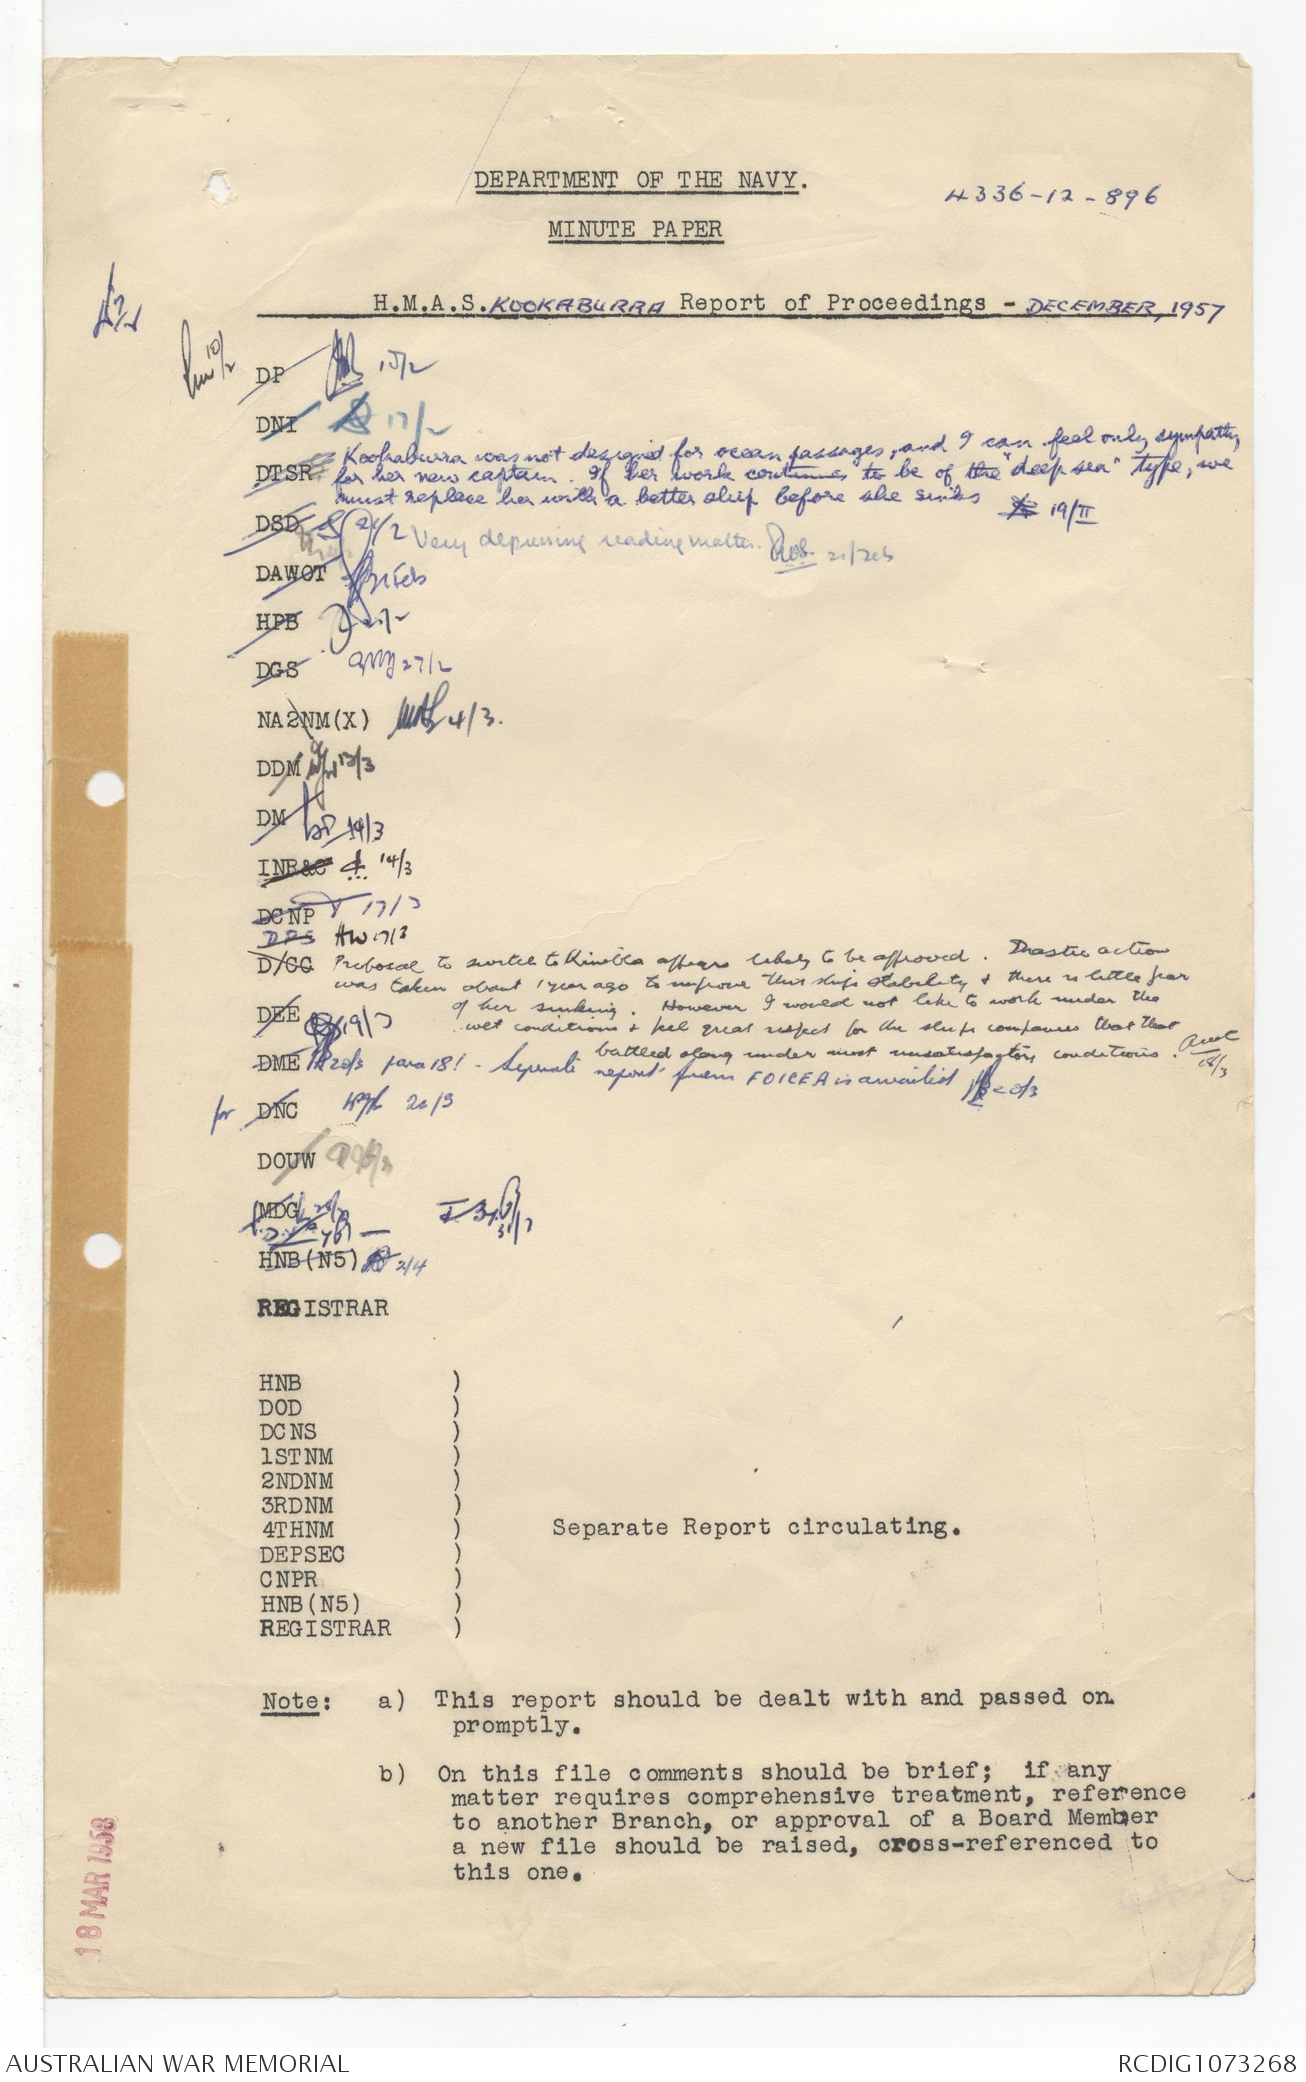 DEPARTMENT OF THE NAVY.
4336-12-896
MINUTE PAPER
H.M.A.S. KOOKABURRA Report of Proceedings - DECEMBER, 1957
10/2
DP 15/2
DNI 17/2
Kookaburra was not designed for ocean passages, and I can feel only sympathy
DTSR for her new captain. If her work continues to be of the "deep sea" type, we
must replace her with a better ship before she sinks 19/II
DSD 21/2 Very depressing reading matter. 21/Feb
DAWOT 21 Feb
HPB
DGS 27/2
NA2NM(X) 4/3.
DDM 13/3
DM 14/3
INR&C 14/3
DCNP 17/3
DPS HW 17/3
D/CC Proposal to switch to Kimbla appears likely to be approved. Drastic action
was taken about 1 year ago to improve this ship's stability & there is little fear
of her sinking. However I would not like to work under the
DEE 19/3 wet conditions & feel great respect for the ship's companies that that
battled along under most unsatisfactory conditions. 18/3
DME 20/3 para 18! - Separate report from FOICEA is awaited 20/3
for DNC 20/3
DOUW
MDG
31/3
HNB(N5) 2/4
REGISTRAR
HNB )
DOD )
DCNS )
1STNM )
2NDNM )
3RDNM )
4THNM ) Separate Report circulating.
DEPSEC )
CNPR )
HNB(N5) )
REGISTRAR )
Note: a) This report should be dealt with and passed on
promptly.
b) On this file comments should be brief; if any
matter requires comprehensive treatment, reference
to another Branch, or approval of a Board Member
a new file should be raised, cross-referenced to
this one.
18 MAR 1958
AUSTRALIAN WAR MEMORIAL
RCDIG1073268